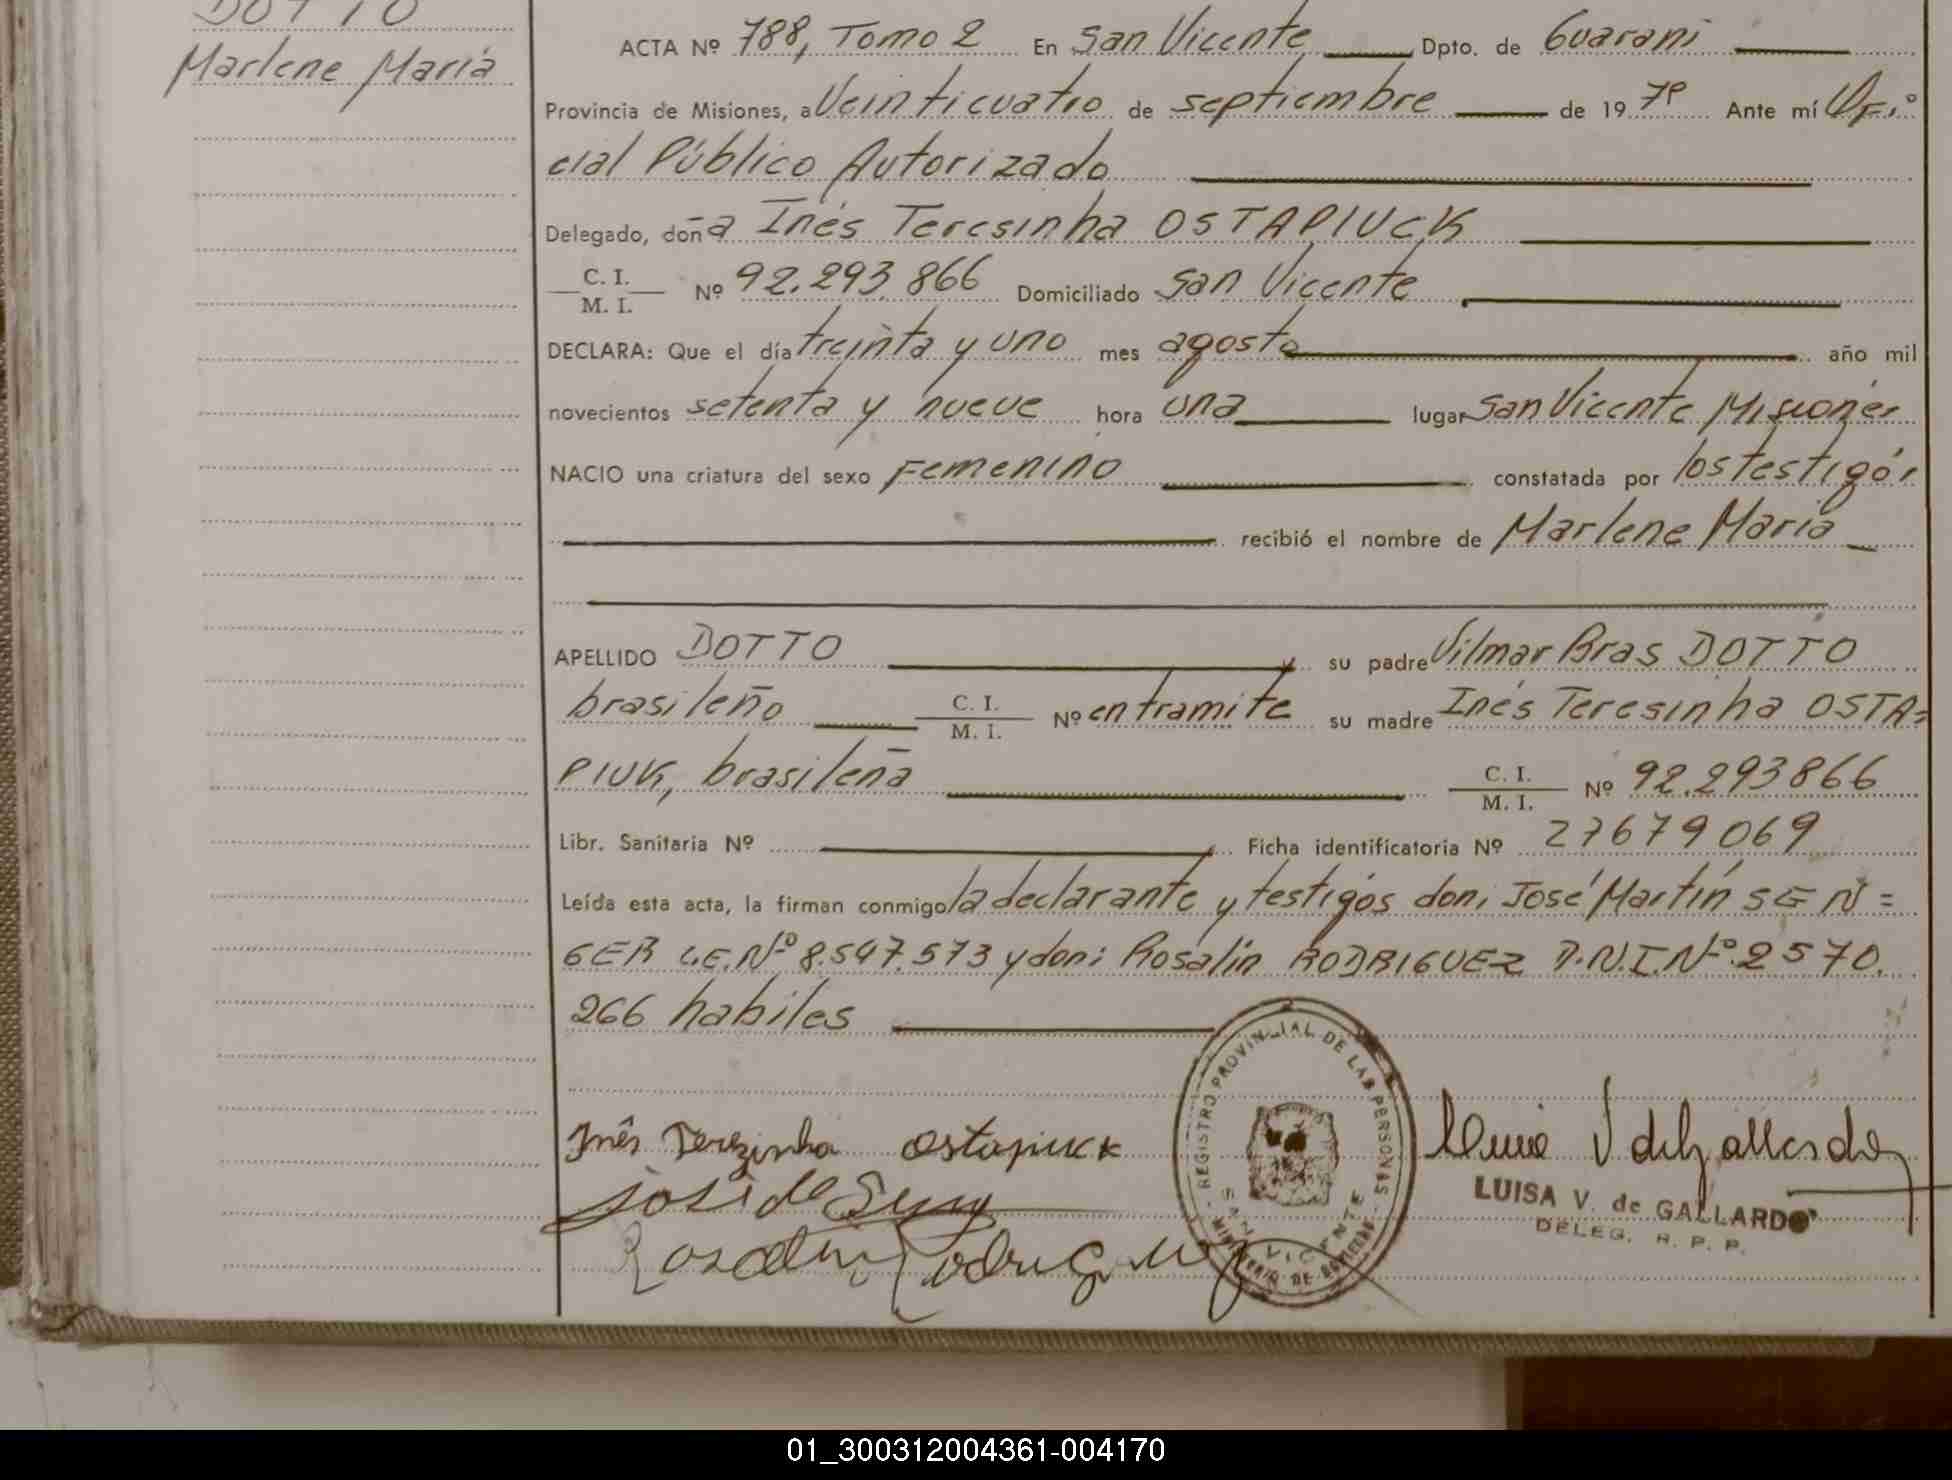 DOTTO
Marlene María
ACTA Nº 788, Tomo 2 En San Vicente Dpto. de Guaraní
Provincia de Misiones, a Veinticuatro de septiembre de 19 79 Ante mí Ofi=
cial Público Autorizado
Delegado, doña Inés Teresinha OSTAPIUCK
C. I.
M. I. Nº 92.293.866 Domiciliado San Vicente
DECLARA: Que el día treinta y uno mes agosto año mil
novecientos setenta y nueve hora una lugar San Vicente Misiones
NACIO una criatura del sexo Femenino constatada por los testigos
recibió el nombre de Marlene María
APELLIDO DOTTO su padre Vilmar Bras DOTTO
brasileño C. I. M. I. Nº en tramite su madre Inés Teresinha OSTA=
PIUK, brasileña C. I. M. I. Nº 92.293866
Libr. Sanitaria Nº Ficha identificatoria Nº 27679069
Leída esta acta, la firman conmigo la declarante y testigos don: José Martín SEN=
GER L.E.Nº 8.547.573 y don: Rosalín RODRIGUEZ D.N.I.Nº.2570.
266 habiles
Inês Terezinha Ostapiuck
Rosalin Rodriguez
REGISTRO PROVINCIAL DE LAS PERSONAS
SAN VICENTE
MINISTERIO DE GOBIERNO
LUISA V. de GALLARDO
DELEG. R. P. P.
01_300312004361-004170